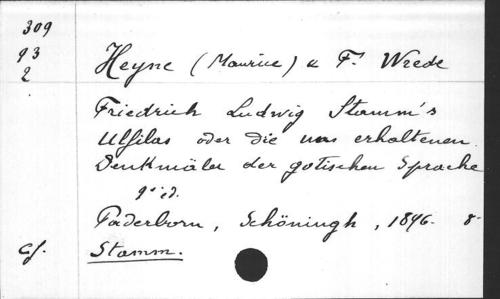 309
93
2
Heyne (Maurice) & F. Wrede
Friedrich Ludwig Stamm's
Ulfilas oder die uns erhaltenen
Denkmäler der gotischen Sprache
9e éd.
Paderborn, Schöningh, 1896. 8-
Cf. Stamm.